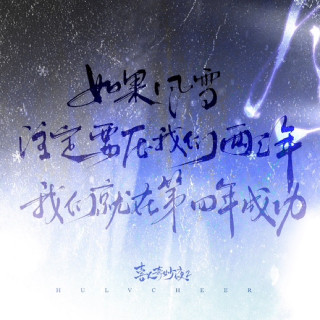 如果风雪
注定要压我们两三年
我们就在第四年成功
喜人奇妙夜2
HULVCHEER